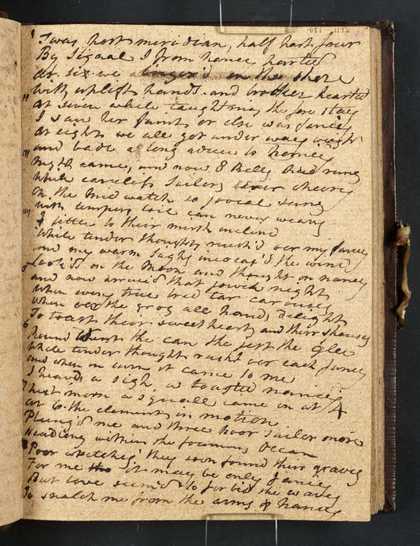 Twas post meridian, half past four
By Signal I from nancy parted
At six we on the shore
With uplift hands and broken hearted
At seven while taughtning the fore stay
I saw her faint or else was fancy
At eight we all got under
and bade a long adieu to Nancy
Night came, and now 8 Bells had rung
While careless Sailors ever cheery
On the mid watch so jovial sung
With tempers toil can never weary
I little to their mirth inclind
While tender thoughts rush'd oer my fancy
and my warm sighs increas'd the wind
Look'd on the moon and thought on nancy
and now arrived that jovial night
When every true bred tar carouses
When oer the grog all hands delight
To toast their sweethearts and their spouses
Round went the can the jest the glee
While tender thoughts rush'd oer each fancy
and when in turn it came to me
I heav'd a sigh & toasted nancy
Next morn a squall came on at 4
at 6 the elements in motion
Plung'd me and three poor Sailors more
Headlong within the foaming Ocean
Poor wretches they soon found their graves
For me it may be only fancy
But love seem'd to forbid the waves
To snatch me from the arms of Nancy